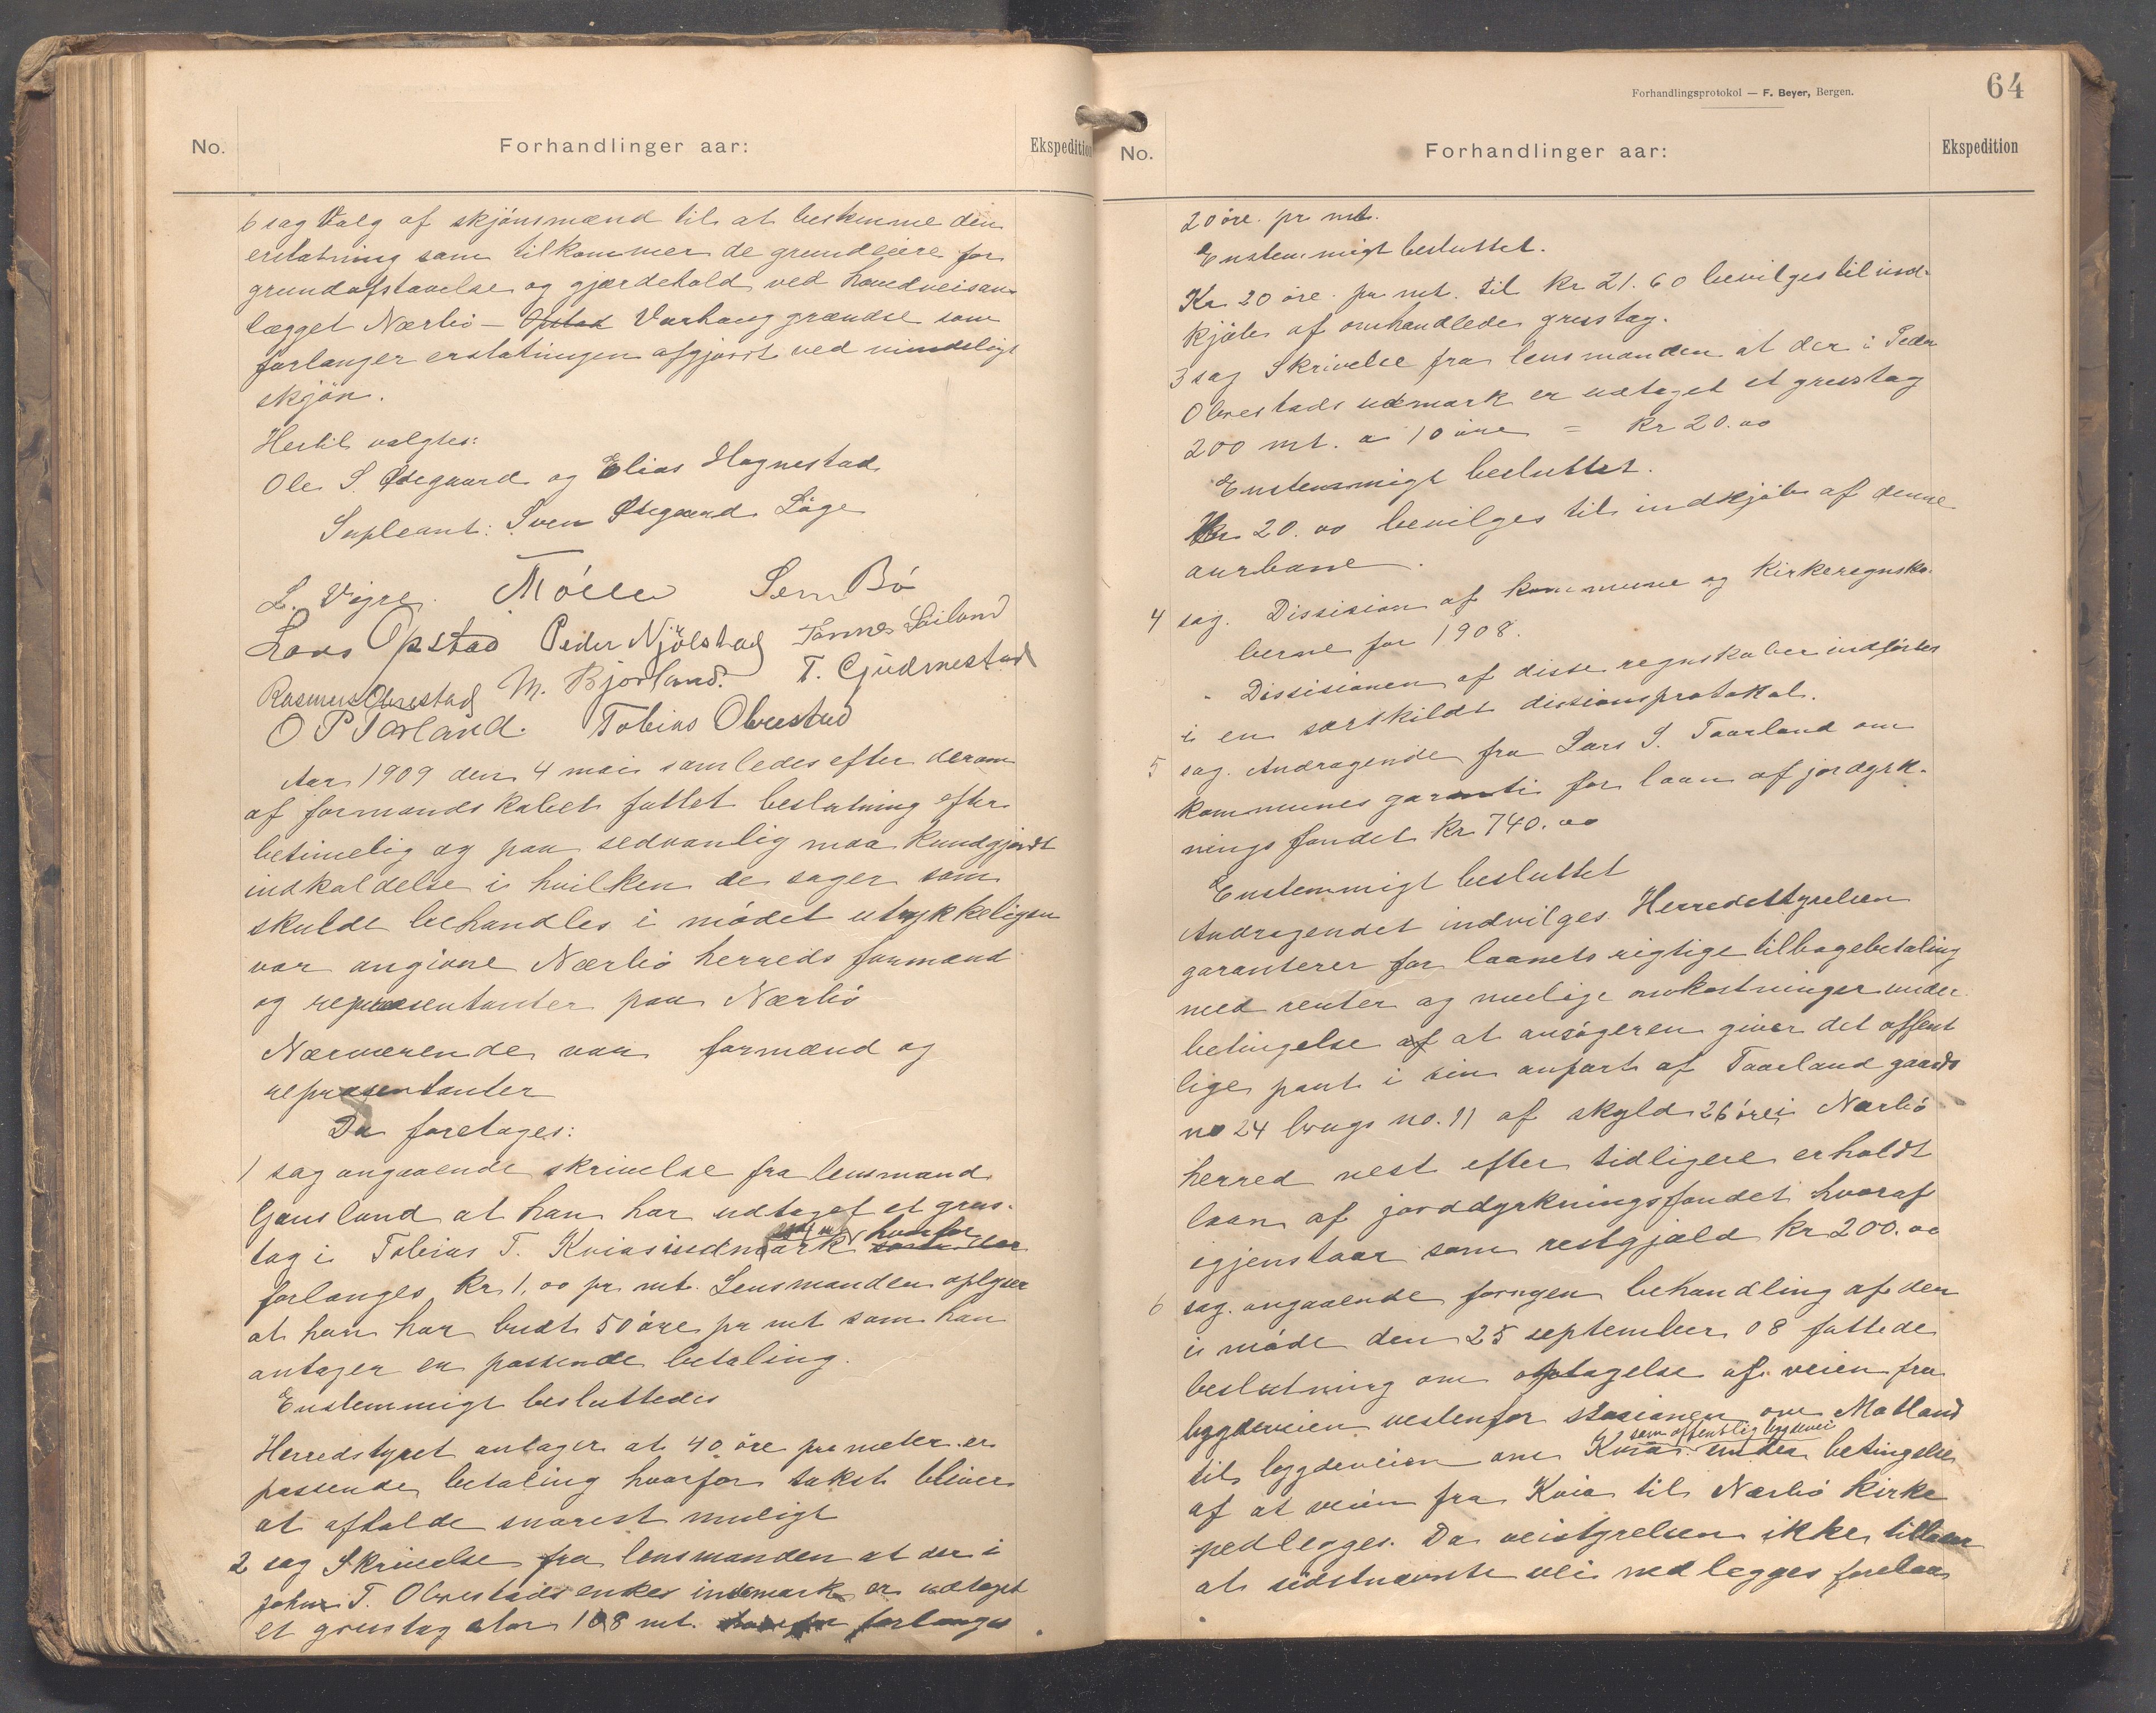 No.
Forhandlinger aar:
Ekspedition
6 sag Valg af skjönsmænd til at bestemme den
erstatning som tilkommer de grundeiere for
grundafstaaelse og gjærdehold ved hovedveisan-
lægget Nærbö - Opstad Varhaug grændse som
forlanger erstatningen afgjordt ved mindeligt
skjön.
Hertil valgtes:
Ole S. Ødegaard og Elias Hognestad
Supleant: Sven Ødegaard Löge
L. Vigre. Mölle Sem Bö
Lars Opstad Peder Njölstad Tönnes Loiland
Rasmus Obrestad M. Bjorland. T. Gjudmestad
O P Torland. Tobias Obrestad
Aar 1909 den 4 mai samledes efter derom
af formandskabet fattet beslutning efter
betimelig og paa sedvanlig maa kundgjordt
indkaldelse i hvilken de sager som
skulde behandles i mödet utrykkeligen
var angivne Nærbö herreds formænd
og representanter paa Nærbö
Nærværende var formænd og
representanter
Da foretages:
1 sag angaaende skrivelse fra lensmand
Gausland at han har udtaget et grus-
tag i Tobias T. Kvias indmark hvorfor
forlanges kr 1,00 pr mt. Lensmanden oplyser
at han har budt 50 öre pr mt som han
antager en passende betaling.
Enstemmigt besluttedes
Herredstyret antager at 40 öre pr meter er
passende betaling hvorfor takst bliver
at afholde snarest muligt
2 sag Skrivelse fra lensmanden at der i
John T. Obrestads enkes indemark er udtaget
et grustag stor 108 mt. forlanges
Forhandlingsprotokol — F. Beyer, Bergen.
64
No.
Forhandlinger aar:
Ekspedition
20 öre. pr mt.
Enstemmigt besluttet.
Kr 20 öre pr mt. til kr 21.60 bevilges til ind-
kjöb af omhandlede grustag.
3 sag Skrivelse fra lensmanden at der i Peder
Obrestads udmark er udtaget et grustag
200 mt. a 10 öre = kr 20.00
Enstemmigt besluttet.
Kr 20.00 bevilges til indkjöb af denne
aurbane.
4 sag. Dissision af kommune og Kirkeregnska-
berne for 1908.
Dissisionen af disse regnskaber indförtes
i en særskildt dissionsprotokol.
5 sag. Andragende fra Lars S. Taarland om
kommunes garanti for laan af jordyrk-
nings fondet kr 740.00
Enstemmigt besluttet
Andragendet indvilges. Herredstyrelsen
garanterer for laanets rigtige tilbagebetaling
med renter og mulige omkostninger under
betingelse af at ansögeren giver det offent
lige pant i sin anpart af Taarland gaards
no 24 brugs no. 11 af skyld 26 öre i Nærbö
herred nest efter tidligere erholdt
laan af jorddyrkningsfondet hvoraf
igjenstaar som restgjæld kr 200.00
6 sag. angaaende fornyen behandling af den
i möde den 25 september 08 fattede
beslutning om optagelse af veien fra
bygdeveien vestenfor stasionen over Motland
som offentlig bygdevei
til bygdeveien om Kvia under betingelse
af at veien fra Kvia til Nærbö kirke
nedlegges. Da veistyrelsen ikke tillader
at sidstnævnte vei nedlegges forelaa